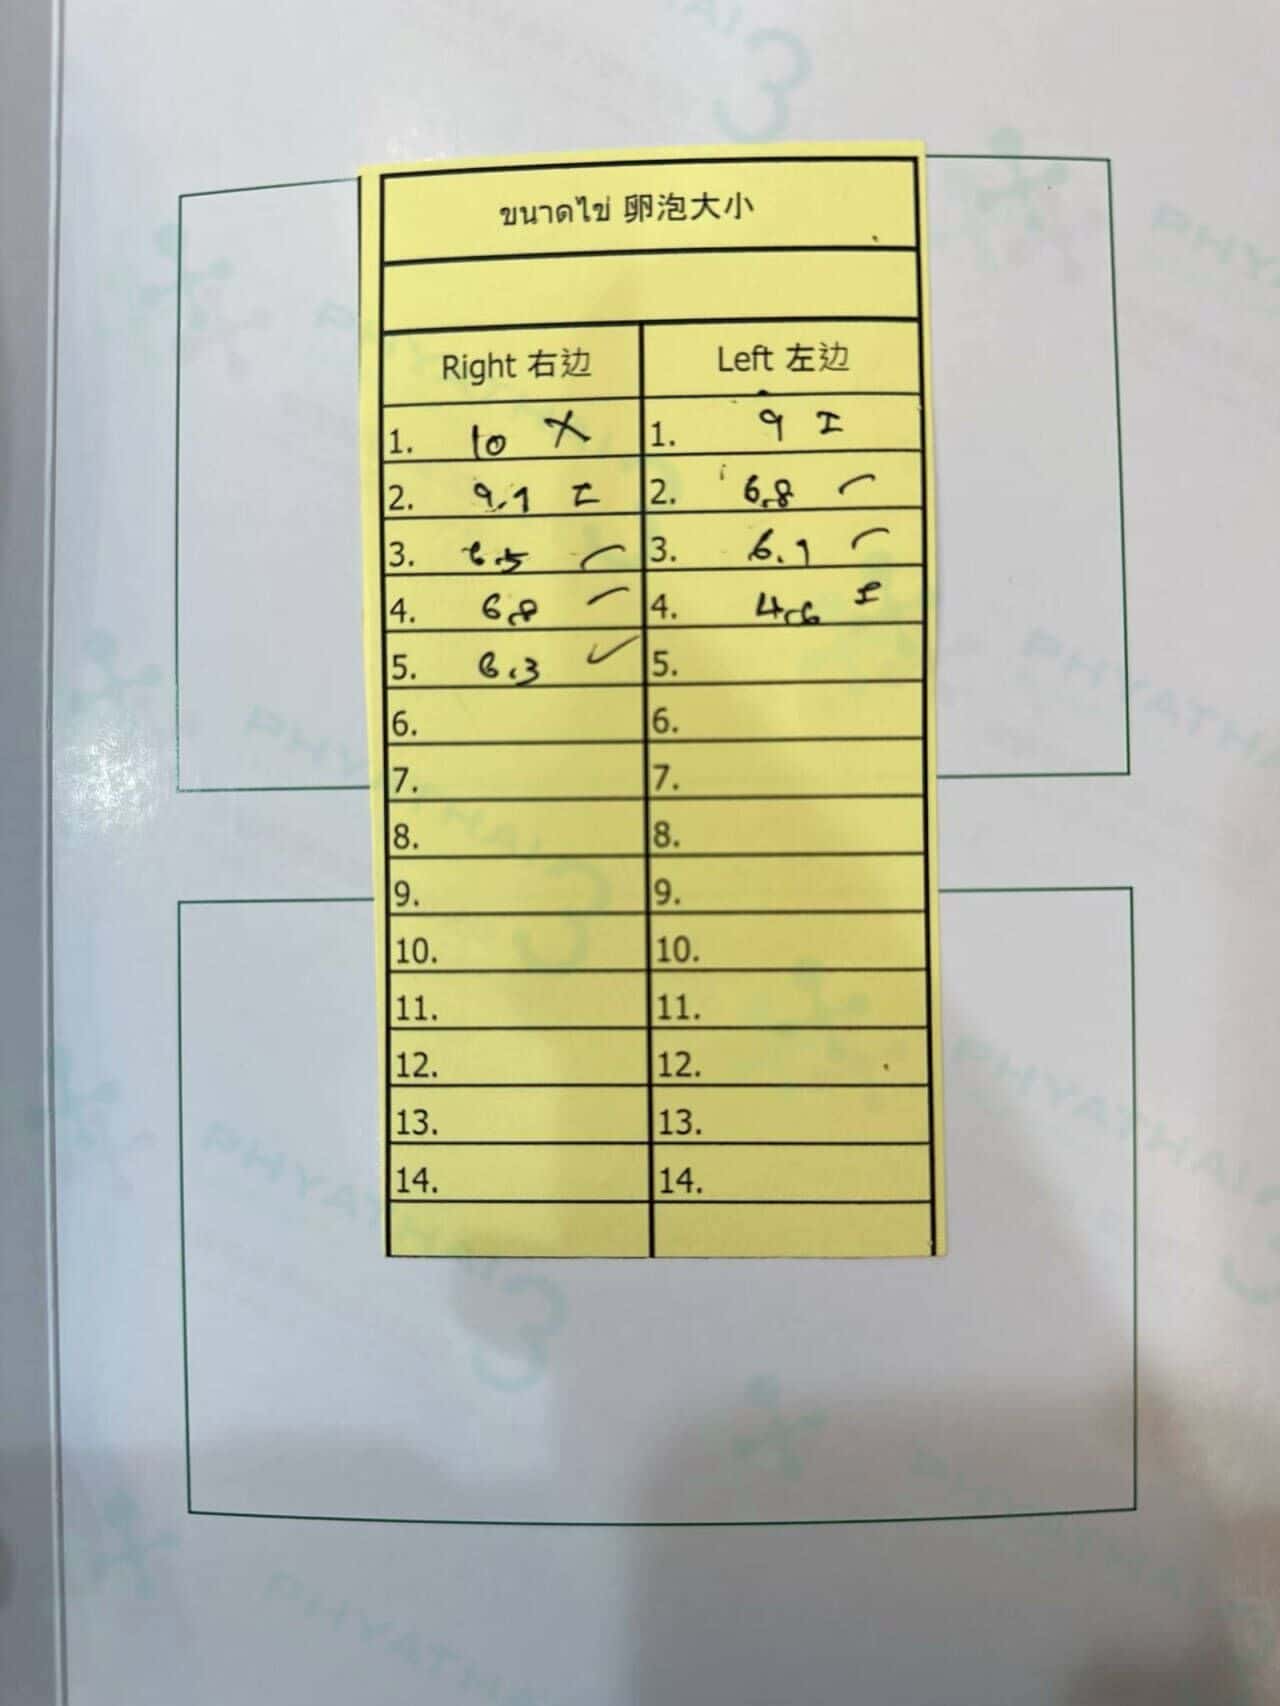 ขนาดไข่ 卵泡大小
Right 右边 Left 左边
1. 10 X 1. 9 I
2. 9.1 I 2. 6.8
3. 6.5 3. 6.1
4. 6.8 4. 4.6 I
5. 6.3 ✓ 5.
6. 6.
7. 7.
8. 8.
9. 9.
10. 10.
11. 11.
12. 12.
13. 13.
14. 14.
PHYATHAI 3
PHYATHAI
PHYATHAI 3
PHYATHAI
PHYATHAI 3
PHYATHAI
PHYATHAI